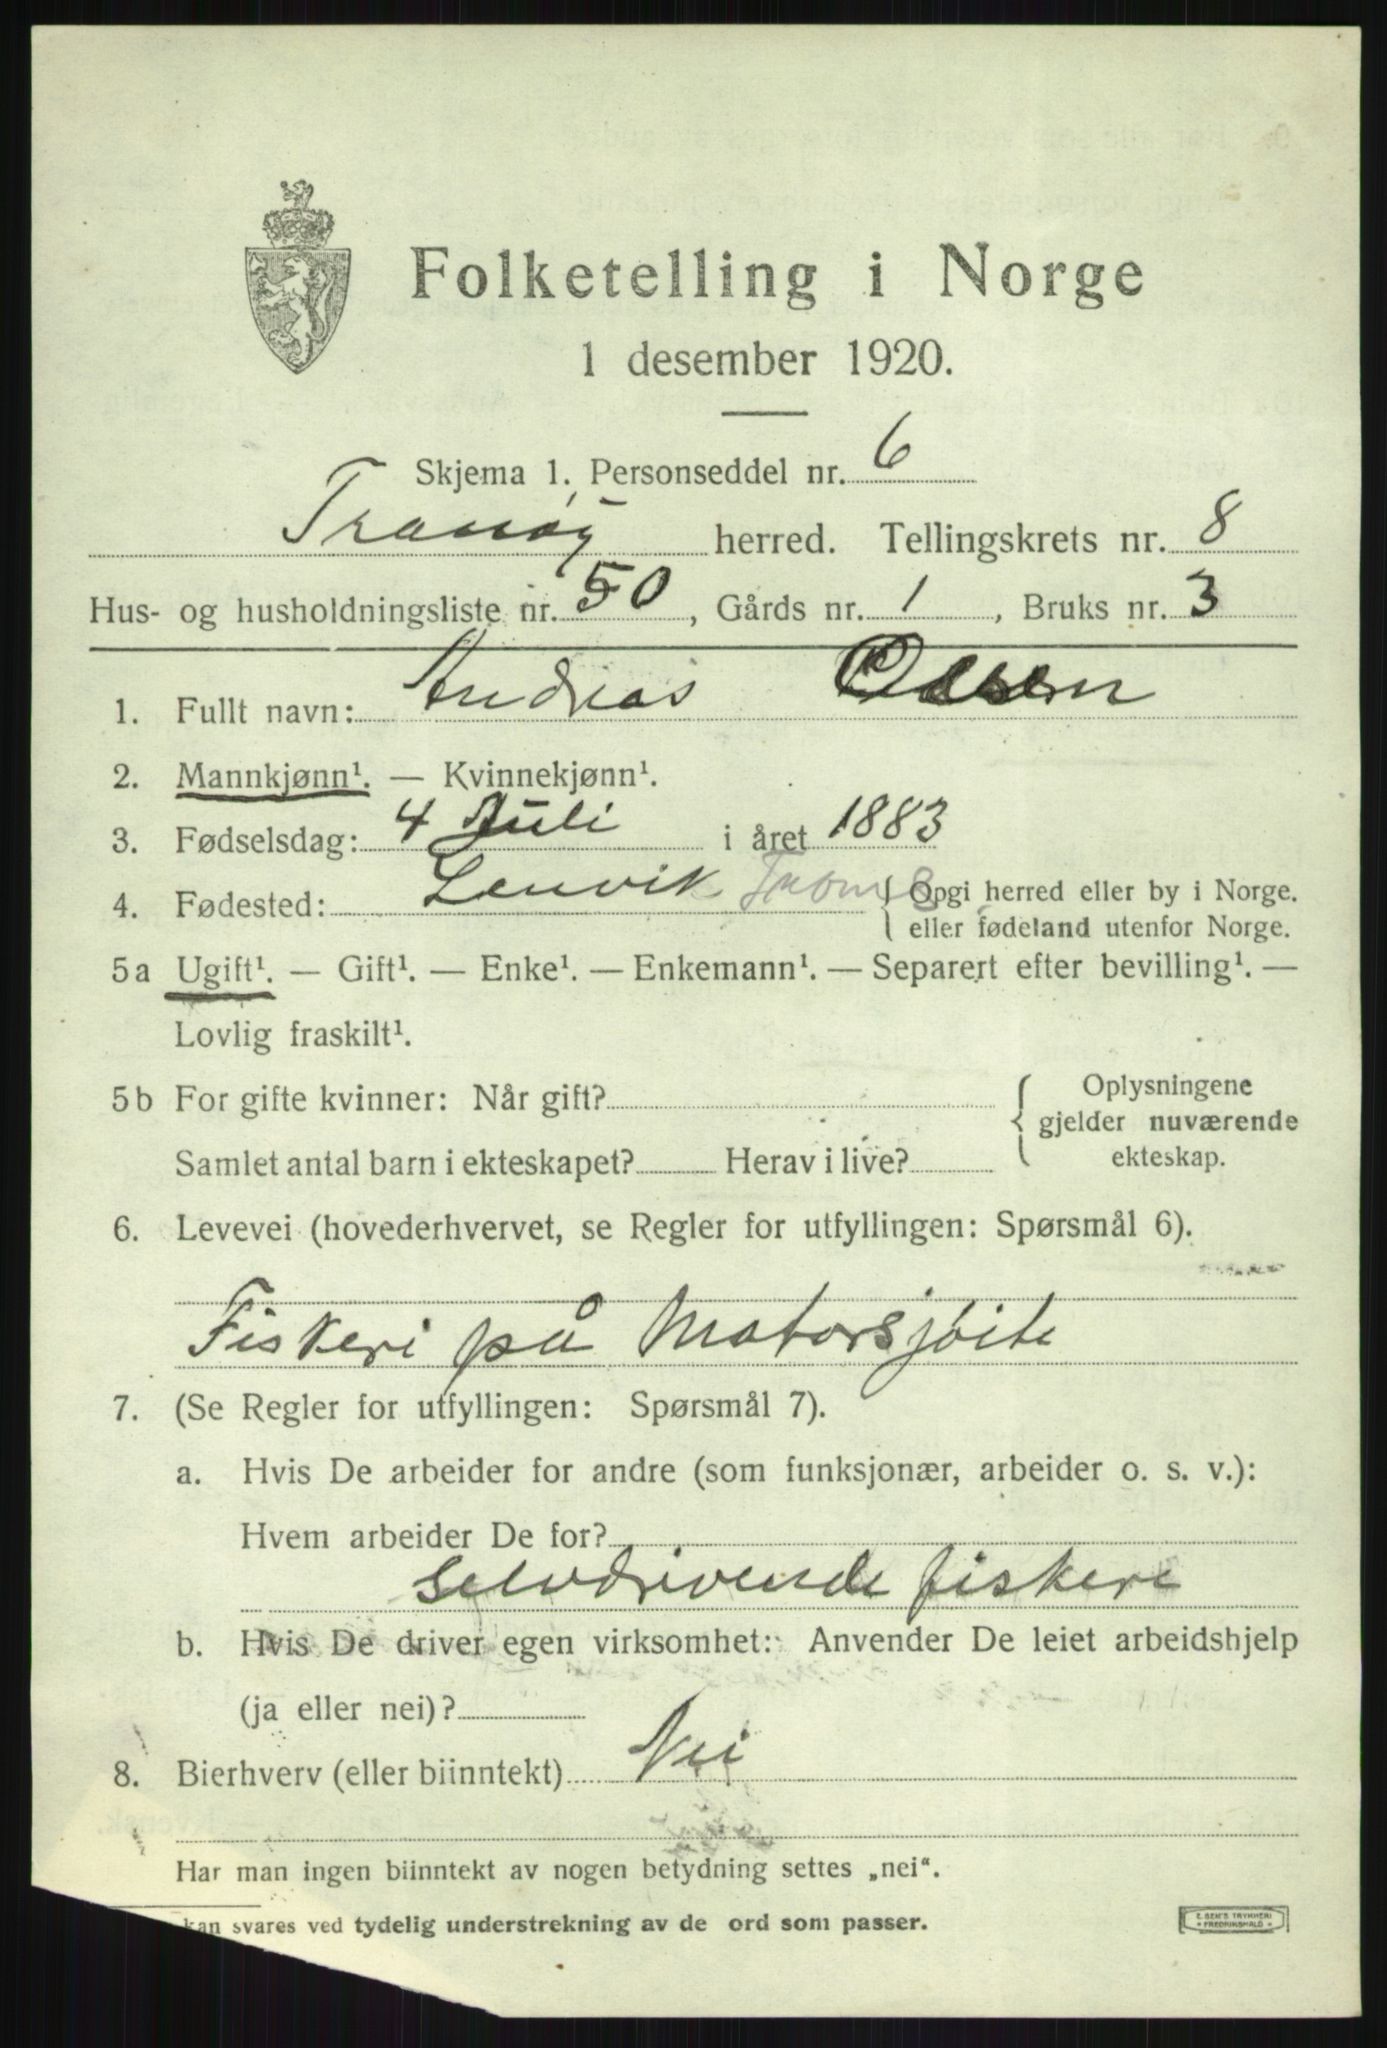 Folketelling i Norge
1 desember 1920.
Skjema 1. Personseddel nr. 6
Tranøy herred. Tellingskrets nr. 8
Hus- og husholdningsliste nr. 50, Gårds nr. 1, Bruks nr. 3
1. Fullt navn: Andreas Olsen
2. Mannkjønn¹. — Kvinnekjønn¹.
3. Fødselsdag: 4 Juli i året 1883
4. Fødested: Lenvik Troms { Opgi herred eller by i Norge.
eller fødeland utenfor Norge.
5a Ugift¹. — Gift¹. — Enke¹. — Enkemann¹. — Separert efter bevilling¹. —
Lovlig fraskilt¹.
5b For gifte kvinner: Når gift? { Oplysningene
gjelder nuværende
Samlet antal barn i ekteskapet? Herav i live? ekteskap.
6. Levevei (hovederhvervet, se Regler for utfyllingen: Spørsmål 6).
Fiskeri på Motorsjøite
7. (Se Regler for utfyllingen: Spørsmål 7).
a. Hvis De arbeider for andre (som funksjonær, arbeider o. s. v.):
Hvem arbeider De for?
Selvdrivende fiskeri
b. Hvis De driver egen virksomhet: Anvender De leiet arbeidshjelp
(ja eller nei)?
8. Bierhverv (eller biinntekt) Nei
Har man ingen biinntekt av nogen betydning settes „nei“.
kan svares ved tydelig understrekning av de ord som passer.
E. SEM'S TRYKKERI
FREDRIKSHALD